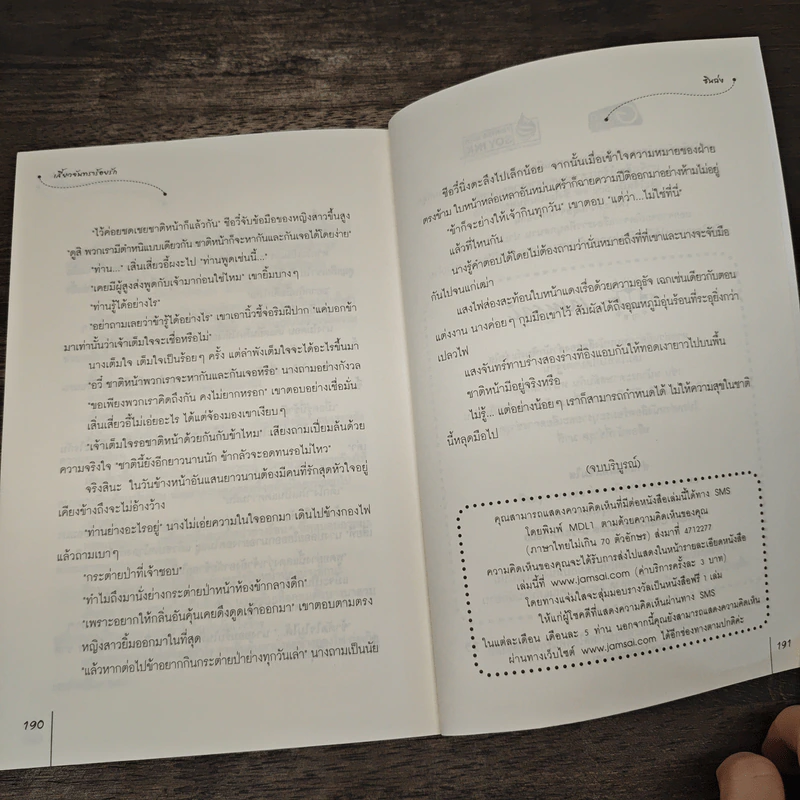 เสี้ยวจันทราร้อยรัก
"ไว้ค่อยชดเชยชาติหน้าก็แล้วกัน" ซือวี่จับข้อมือของหญิงสาวขึ้นสูง
"ดูสิ พวกเรามีตำหนิแบบเดียวกัน ชาติหน้าก็จะหากันและกันเจอได้โดยง่าย"
"ท่าน..." เสิ่นเสี่ยวอี้ผงะไป "ท่านพูดเช่นนี้..."
"เคยมีผู้สูงส่งพูดกับเจ้ามาก่อนใช่ไหม" เขายิ้มบางๆ
"ท่านรู้ได้อย่างไร"
"อย่าถามเลยว่าข้ารู้ได้อย่างไร" เขาเอานิ้วชี้จ่อริมฝีปาก "แค่บอกข้า
มาเท่านั้นว่าเจ้าเต็มใจจะเชื่อหรือไม่"
นางเต็มใจ เต็มใจเป็นร้อยๆ ครั้ง แต่ลำพังเต็มใจจะได้อะไรขึ้นมา
"อวี่ ชาติหน้าพวกเราจะหากันและกันเจอหรือ" นางถามอย่างกังวล
"ขอเพียงพวกเราคิดถึงกัน คงไม่ยากหรอก" เขาตอบอย่างเชื่อมั่น
เสิ่นเสี่ยวอี้ไม่เอ่ยอะไร ได้แต่จ้องมองเขาเงียบๆ
"เจ้าเต็มใจรอชาติหน้าด้วยกันกับข้าไหม" เสียงถามเปี่ยมล้นด้วย
ความจริงใจ "ชาตินี้ยังอีกยาวนานนัก ข้ากลัวจะอดทนรอไม่ไหว"
จริงสินะ ในวันข้างหน้าอันแสนยาวนานต้องมีคนที่รักสุดหัวใจอยู่
เคียงข้างถึงจะไม่อ้างว้าง
"ท่านย่างอะไรอยู่" นางไม่เอ่ยความในใจออกมา เดินไปข้างกองไฟ
แล้วถามเบาๆ
"กระต่ายป่าที่เจ้าชอบ"
"ทำไมถึงมานั่งย่างกระต่ายป่าหน้าห้องข้ากลางดึก"
"เพราะอยากให้กลิ่นอันคุ้นเคยดึงดูดเจ้าออกมา" เขาตอบตามตรง
หญิงสาวยิ้มออกมาในที่สุด
"แล้วหากต่อไปข้าอยากกินกระต่ายป่าย่างทุกวันเล่า" นางถามเป็นนัย
190
ซินลั่ง
ซือวี่นิ่งตะลึงไปเล็กน้อย จากนั้นเมื่อเข้าใจความหมายของฝ่าย
ตรงข้าม ใบหน้าหล่อเหลาอันหม่นเศร้าก็ฉายความปีติออกมาอย่างห้ามไม่อยู่
"ข้าก็จะย่างให้เจ้ากินทุกวัน" เขาตอบ "แต่ว่า...ไม่ใช่ที่นี่"
แล้วที่ไหนกัน
นางรู้คำตอบได้โดยไม่ต้องถามว่านั่นหมายถึงที่ที่เขาและนางจะจับมือ
กันไปจนแก่เฒ่า
แสงไฟส่องสะท้อนใบหน้าแดงเรื่อด้วยความอุ่น เฉกเช่นเดียวกับตอน
แต่งงาน นางค่อยๆ กุมมือเขาไว้ สัมผัสได้ถึงอุณหภูมิอุ่นร้อนที่ระอุยิ่งกว่า
เปลวไฟ
แสงจันทร์ทาบร่างสองร่างที่อิงแอบกันให้ทอดเงายาวไปบนพื้น
ชาติหน้ามีอยู่จริงหรือ
ไม่รู้... แต่อย่างน้อยๆ เราก็สามารถกำหนดได้ ไม่ให้ความสุขในชาติ
นี้หลุดมือไป
(จบบริบูรณ์)
คุณสามารถแสดงความคิดเห็นที่มีต่อหนังสือเล่มนี้ได้ทาง SMS
โดยพิมพ์ MDL1 ตามด้วยความคิดเห็นของคุณ
(ภาษาไทยไม่เกิน 70 ตัวอักษร) ส่งมาที่ 4712277
ความคิดเห็นของคุณจะได้รับการส่งไปแสดงในหน้ารายละเอียดหนังสือ
เล่มนี้ที่ www.jamsai.com (ค่าบริการครั้งละ 3 บาท)
โดยทางแจ่มใสจะสุ่มมอบรางวัลเป็นหนังสือฟรี 1 เล่ม
ให้แก่ผู้โชคดีที่แสดงความคิดเห็นผ่านทาง SMS
ในแต่ละเดือน เดือนละ 5 ท่าน นอกจากนี้คุณยังสามารถแสดงความคิดเห็น
ผ่านทางเว็บไซต์ www.jamsai.com ได้อีกช่องทางตามปกติค่ะ
191